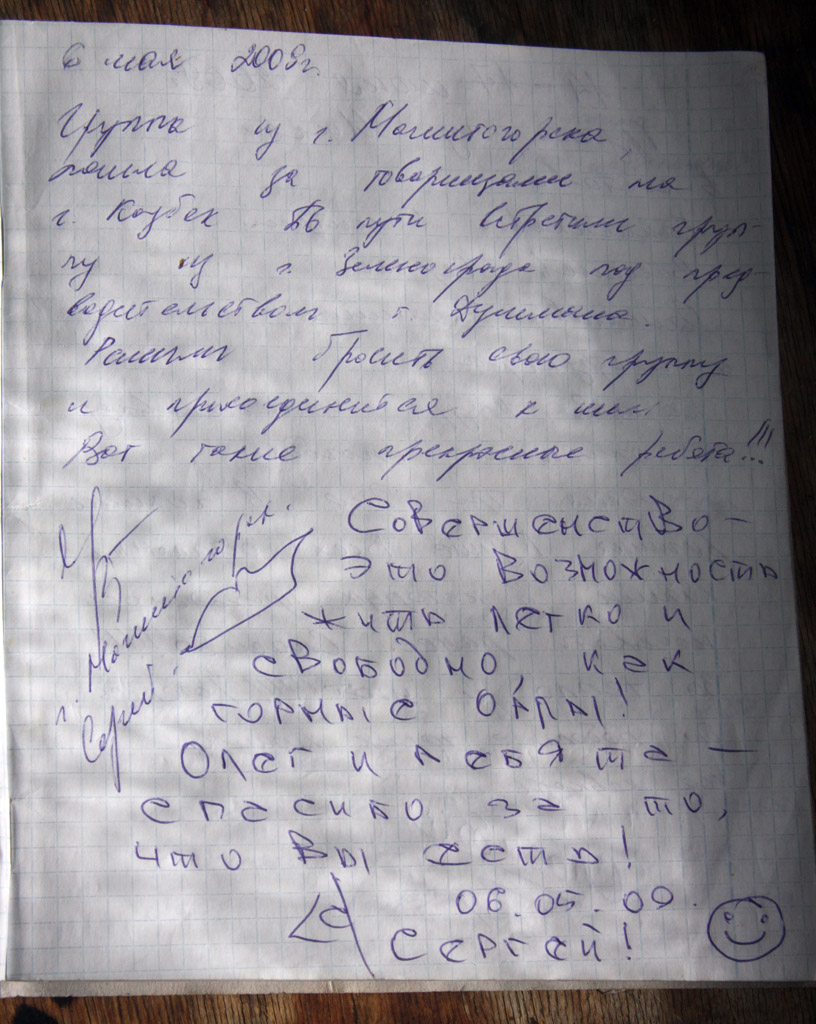 6 мая 2009г.
Группа из г. Магнитогорска,
пошла за товарищами на
г. Казбек В пути встретили груп-
пу из г. Зеленограда под пред-
водительством г. Душмана.
Решили бросить свою группу
и присоединится к ним.
Вот такие прекрасные ребята!!!
г. Магнитогорск.
Сергей.
Совершенство –
это возможность
жить легко и
свободно, как
горные орлы!
Олег и ребята –
спасибо за то,
что Вы есть!
06.05.09.
Сергей!